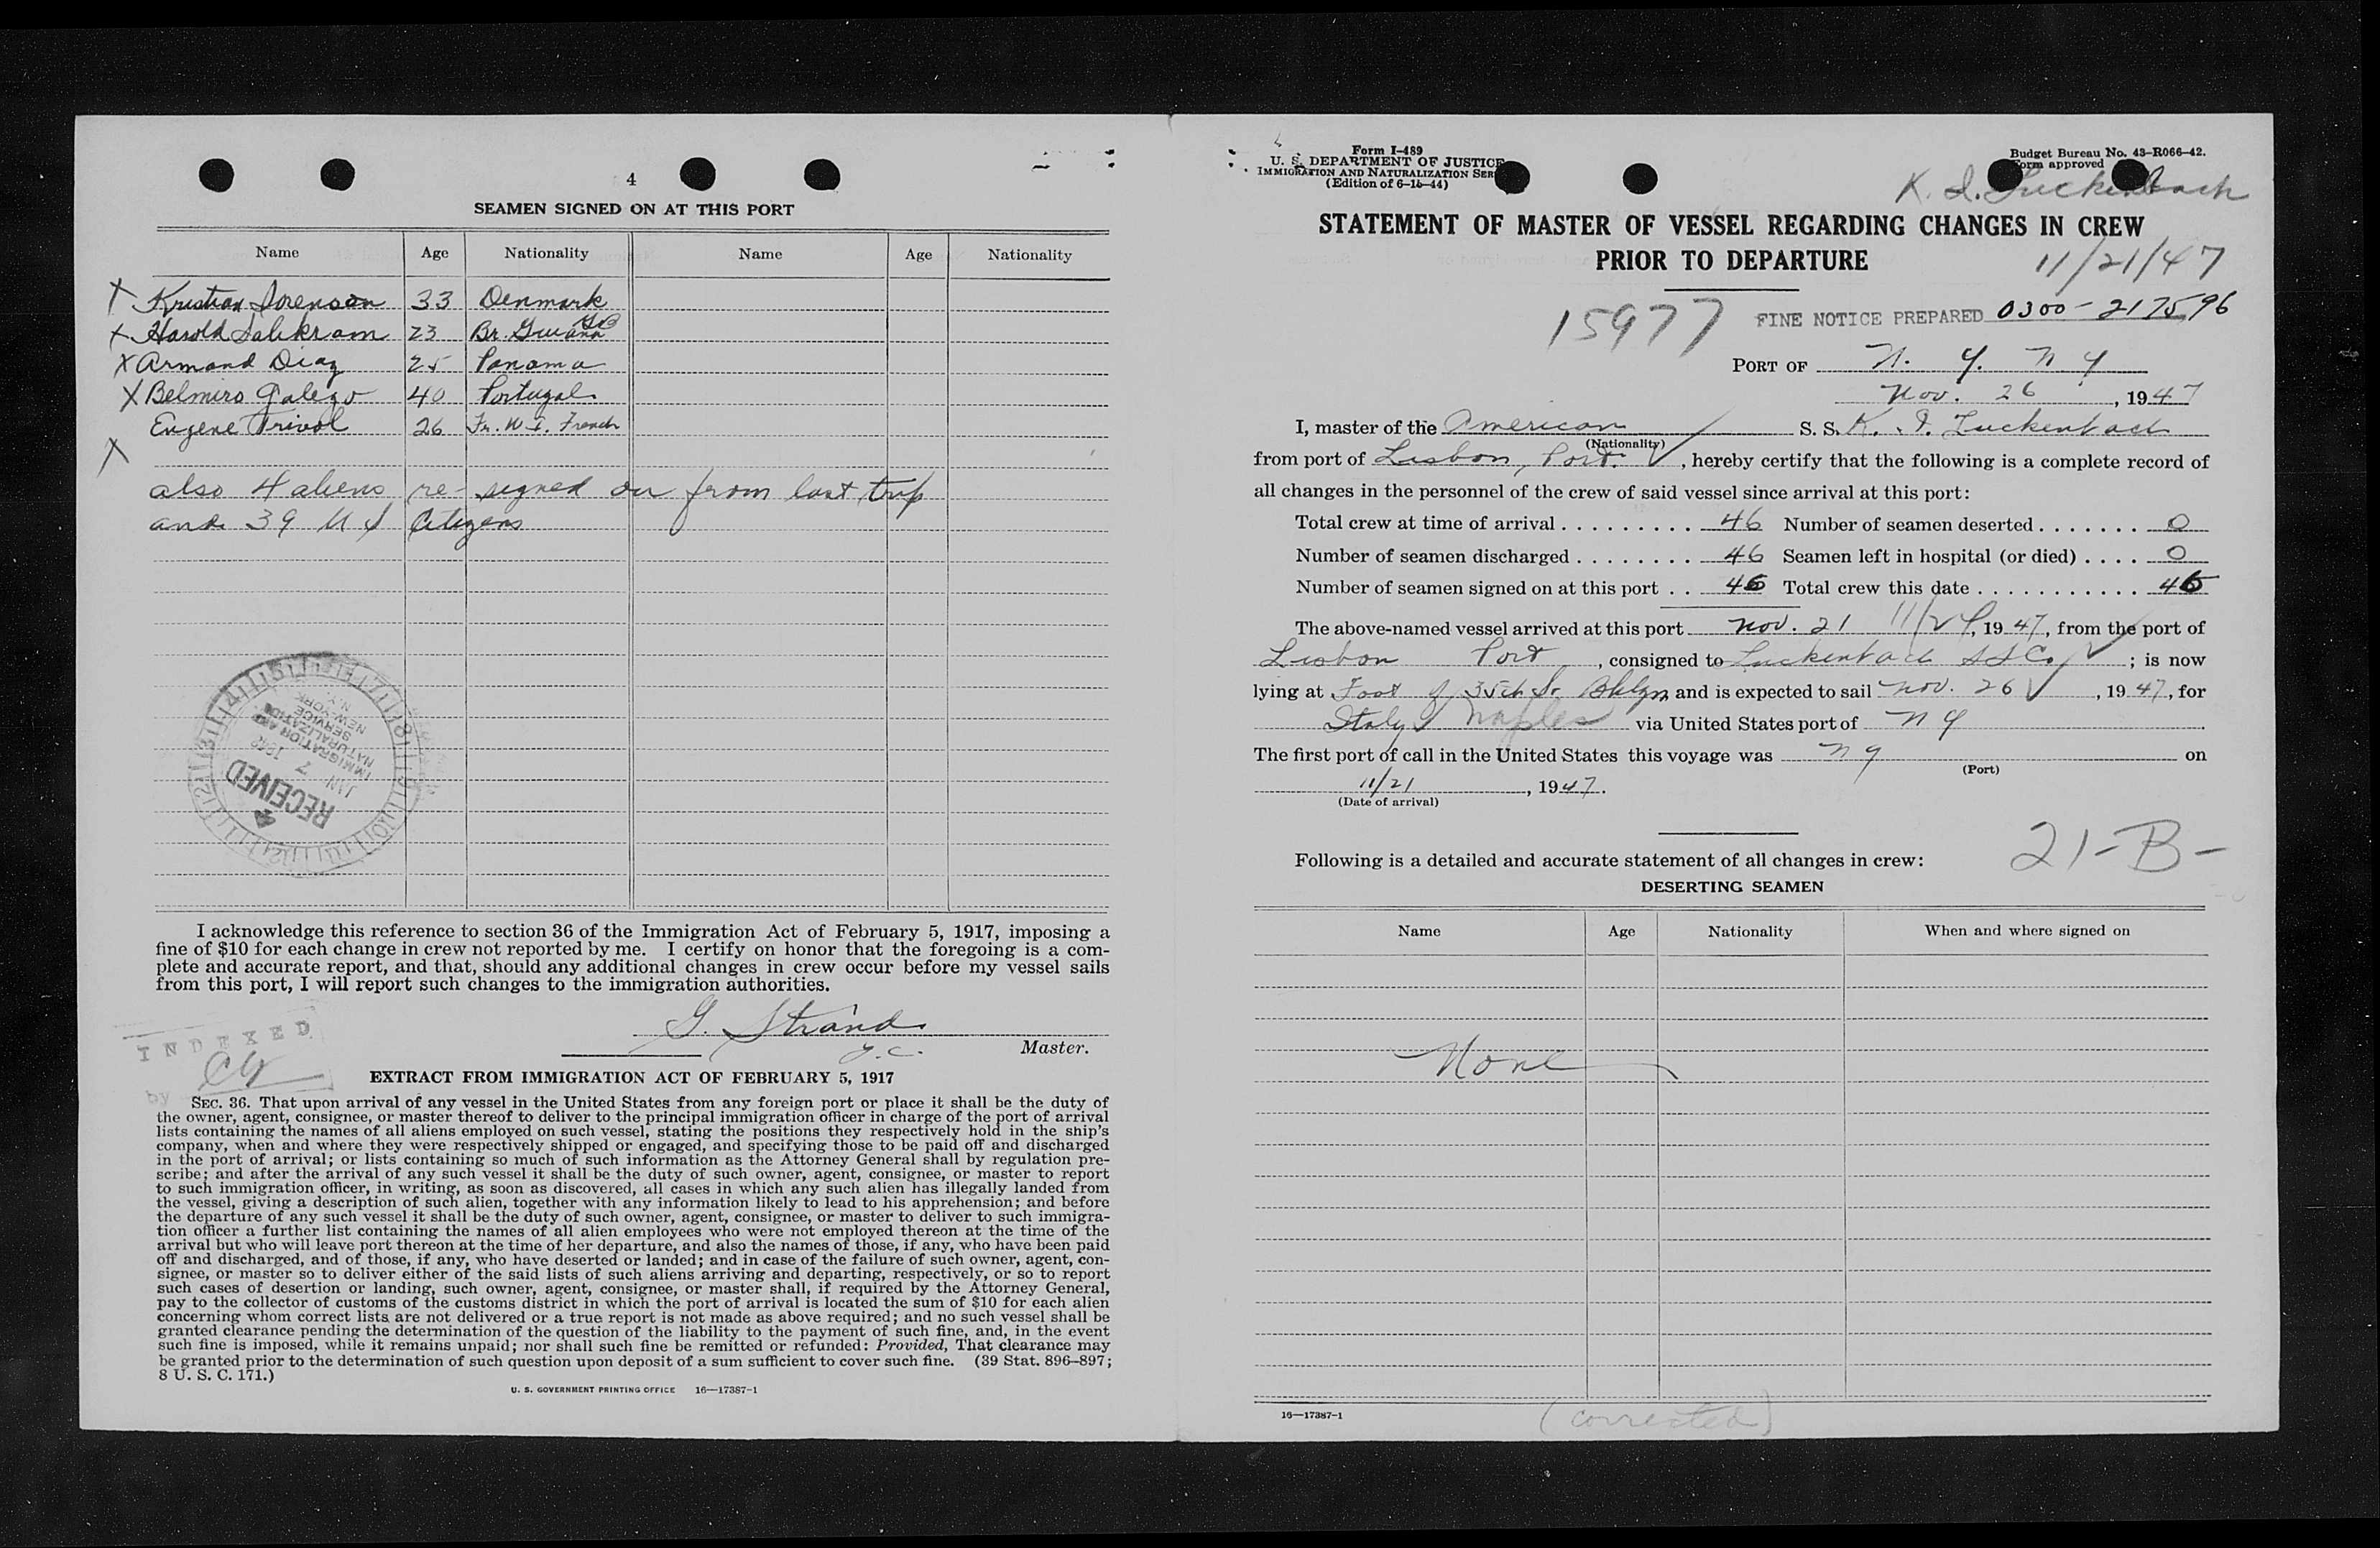 4
SEAMEN SIGNED ON AT THIS PORT
Name Age Nationality Name Age Nationality
X Kristian Sorenson 33 Denmark
X Harold Salikram 23 Br. Guiana
X Armand Diaz 25 Panama
X Belmiro Galego 40 Portugal
Eugene Trivol 26 Fr. W. I. French
X
also 4 aliens re-signed on from last trip
and 39 U S Citizens
IMMIGRATION AND
NATURALIZATION
SERVICE
NEW YORK
N.Y.
JAN 7 1948
RECEIVED
I acknowledge this reference to section 36 of the Immigration Act of February 5, 1917, imposing a
fine of $10 for each change in crew not reported by me. I certify on honor that the foregoing is a com-
plete and accurate report, and that, should any additional changes in crew occur before my vessel sails
from this port, I will report such changes to the immigration authorities.
G. Strand
Master.
INDEXED
by
EXTRACT FROM IMMIGRATION ACT OF FEBRUARY 5, 1917
SEC. 36. That upon arrival of any vessel in the United States from any foreign port or place it shall be the duty of
the owner, agent, consignee, or master thereof to deliver to the principal immigration officer in charge of the port of arrival
lists containing the names of all aliens employed on such vessel, stating the positions they respectively hold in the ship's
company, when and where they were respectively shipped or engaged, and specifying those to be paid off and discharged
in the port of arrival; or lists containing so much of such information as the Attorney General shall by regulation pre-
scribe; and after the arrival of any such vessel it shall be the duty of such owner, agent, consignee, or master to report
to such immigration officer, in writing, as soon as discovered, all cases in which any such alien has illegally landed from
the vessel, giving a description of such alien, together with any information likely to lead to his apprehension; and before
the departure of any such vessel it shall be the duty of such owner, agent, consignee, or master to deliver to such immigra-
tion officer a further list containing the names of all alien employees who were not employed thereon at the time of the
arrival but who will leave port thereon at the time of her departure, and also the names of those, if any, who have been paid
off and discharged, and of those, if any, who have deserted or landed; and in case of the failure of such owner, agent, con-
signee, or master so to deliver either of the said lists of such aliens arriving and departing, respectively, or so to report
such cases of desertion or landing, such owner, agent, consignee, or master shall, if required by the Attorney General,
pay to the collector of customs of the customs district in which the port of arrival is located the sum of $10 for each alien
concerning whom correct lists are not delivered or a true report is not made as above required; and no such vessel shall be
granted clearance pending the determination of the question of the liability to the payment of such fine, and, in the event
such fine is imposed, while it remains unpaid; nor shall such fine be remitted or refunded: Provided, That clearance may
be granted prior to the determination of such question upon deposit of a sum sufficient to cover such fine. (39 Stat. 896–897;
8 U. S. C. 171.)
U. S. GOVERNMENT PRINTING OFFICE 16—17387-1
Form I-489
U. S. DEPARTMENT OF JUSTICE
IMMIGRATION AND NATURALIZATION SER
(Edition of 6-15-44)
Budget Bureau No. 43-R066-42.
Form approved
K. I. Luckenbach
STATEMENT OF MASTER OF VESSEL REGARDING CHANGES IN CREW
PRIOR TO DEPARTURE
11/21/47
15977
FINE NOTICE PREPARED 0300-217596
PORT OF N. Y. N Y
Nov. 26, 1947
I, master of the American S. S. K. I. Luckenbach
(Nationality)
from port of Lisbon, Port., hereby certify that the following is a complete record of
all changes in the personnel of the crew of said vessel since arrival at this port:
Total crew at time of arrival 46 Number of seamen deserted 0
Number of seamen discharged 46 Seamen left in hospital (or died) 0
Number of seamen signed on at this port 46 Total crew this date 46
The above-named vessel arrived at this port Nov. 21 1947, from the port of
Lisbon Port, consigned to Luckenbach S S Co.; is now
lying at Foot of 35th St. Bklyn and is expected to sail Nov. 26, 1947, for
Italy Naples via United States port of N Y
The first port of call in the United States this voyage was N Y on
(Port)
11/21, 1947.
(Date of arrival)
Following is a detailed and accurate statement of all changes in crew:
21-B-
DESERTING SEAMEN
Name Age Nationality When and where signed on
None
16—17387-1
(corrected)